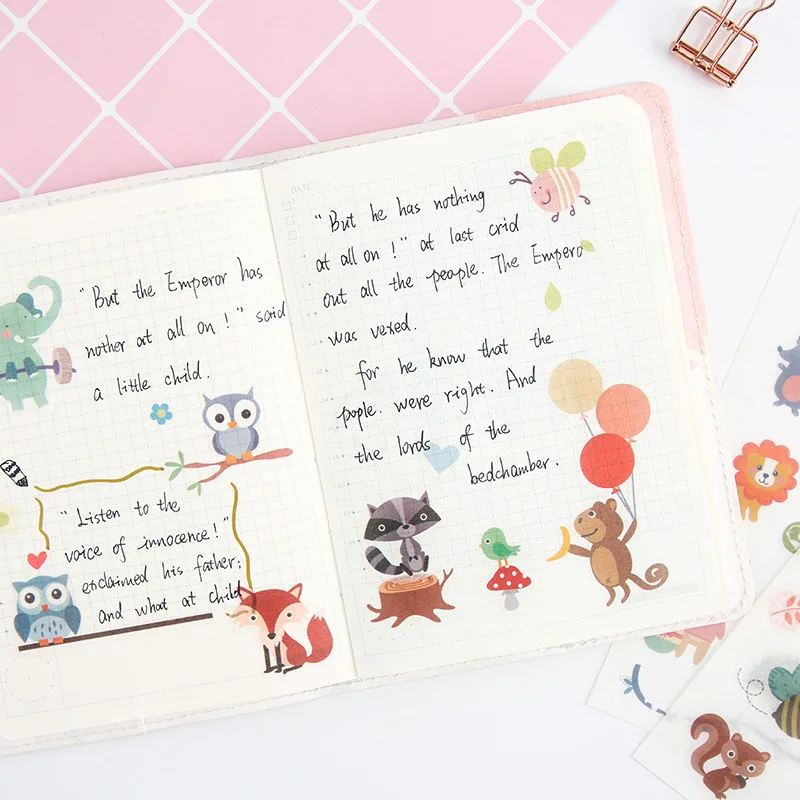 "But the Emperor has
nother at all on!" said
a little child.
"Listen to the
voice of innocence!"
exclaimed his father;
and what at child
DATE
"But he has nothing
at all on!" at last crid
out all the people. The Empero
was vexed.
for he know that the
pople. were right. And
the lords of the
bedchamber.